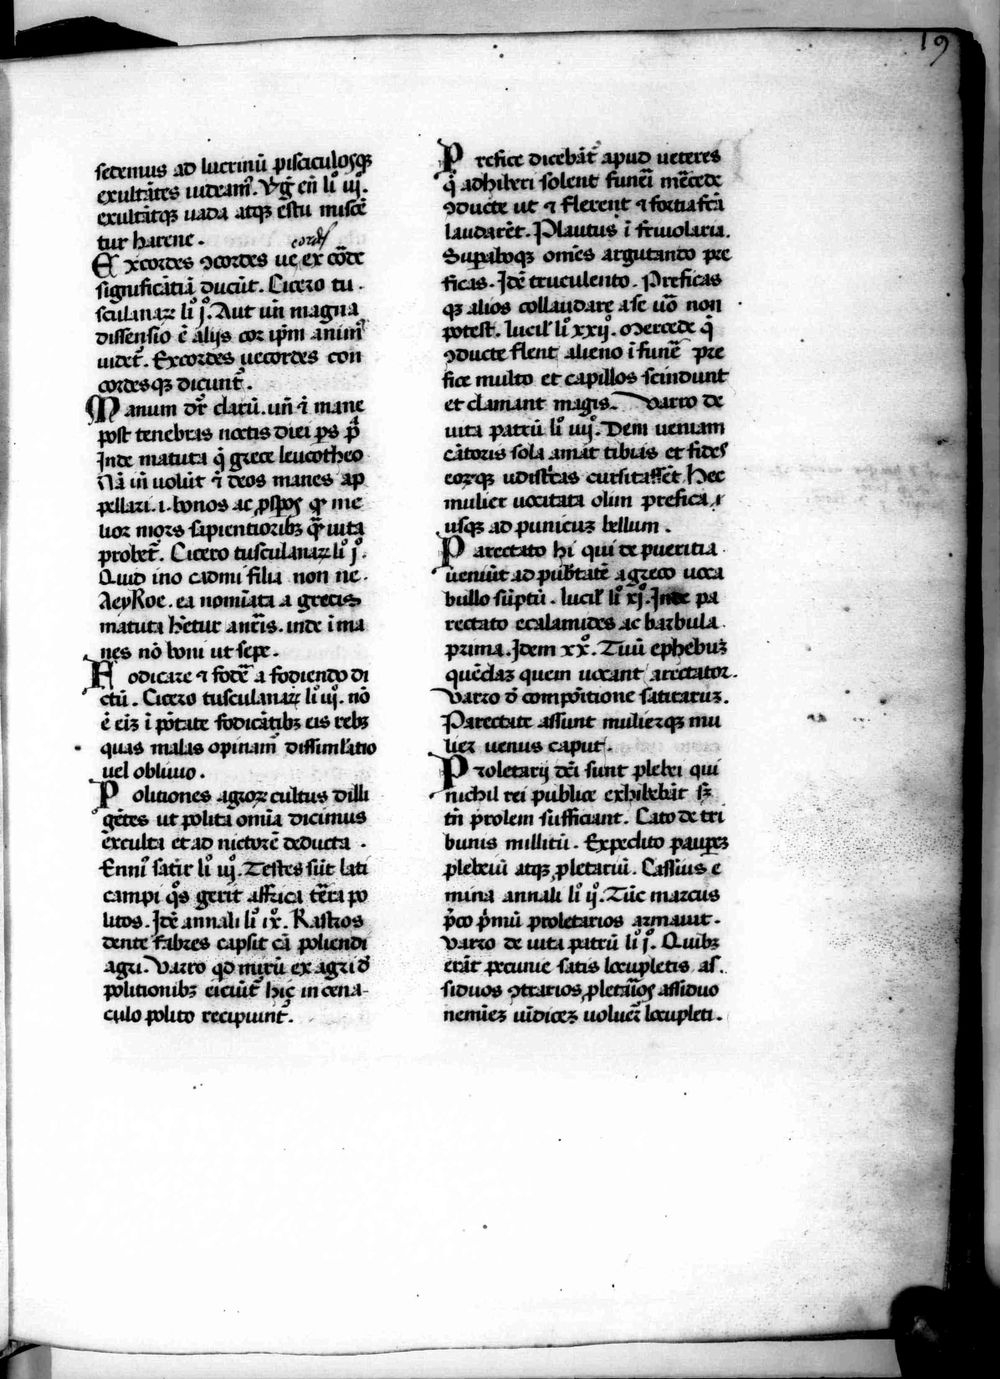 19
sedemus ad lucrinū pisciculosqꝫ
exultātes uideam᷑. Vg̃ eñ liͦ iijͦ.
exultātqꝫ uada atqꝫ estu miscē
tur harene.
cordes
Excordes ꝯcordes ue ex cōde
significātiā ducūt. Cicero tu.
sculanaꝝ liͦ jͦ. Aut uñ magna
dissensio ē alijs cor ip̄m animꝰ
uidet᷑. Excordes uecordes con
cordesqꝫ dicunt᷑.
Manum dr̄ clarū. uñ ⁊ī mane
post tenebras noctis diei ps pᵃ
Inde matuta q̄ grece leucotheo
Nā iñ uolūt ⁊ deos manes ap
pellari. i. bonos ac ꝓspos qꝛ me
lior mors sapientioribꝫ qᵃ̄ uita
probet᷑. Cicero tusculanaꝝ liͦ jͦ.
Quid ino cadmi filia non ne.
λeyKoe. ea nomīata a grecis
matuta hētur anrīs. inde īma
nes nō boni ut sepe.
Fodicare ⁊ fodē᷑ a fodiendo di
ctū. Cicero tusculanaꝝ liͦ iijͦ. nō
ē eīꝫ ī pōtate fodicātibꝫ eis rebꝫ
quas malas opinam᷑ dissimlatio
uel obliuio.
Politiones agroꝝ cultus dilli
gētes ut polita omīa dicimus
exculta et ad nictorē deducta.
Enniꝰ satir liͦ iijͦ. Testes sūt lati
campi qͦs gerit affrica tēra po
litos. Idē annali liͦ ixͦ. Rastros
dente fabres capsit cā poliendi
agri. Varro qd mirū ex agri đ
politionibꝫ eiciūt᷑ hic in cena-
culo polito recipiunt᷑.
Prefice dicebāt᷑ apud ueteres
q̄ adhiberi solent funeri mēcede
ꝯducte ut ⁊ flerent ⁊ fortia fcā
laudarēt. Plautus ī friuolaria.
Supaboqꝫ omīes argutando pre
ficas. Idē truculento. Preficas
qꝫ alios collaudare a se uō non
potest. lucil liͦ xxijͦ. Mercede q̄
ꝯducte flent alieno ī funē᷑ pre
fice multo et capillos scindunt
et clamant magis. Varro de
uita patrū liͦ iiijͦ. Dem ueniam
cātoris sola amāt tibias et fides
eorꝫqꝫ udistr̄as cursitassēt Hec
mulier uocitata olim prefica ⁊
usqꝫ ad punicuꝫ bellum.
Parectato hi qui de pueritia
ueniūt ad pubtatē a greco uoca
bullo sūptū. lucil liͦ xjͦ. Inde pa
rectato ecalamides ac barbula
prima. Idem xxͦ. Tuū ephebuꝫ
quēdaꝫ quem uocant arectator.
Varro đ compōitione satiraruꝫ.
Parectate assunt mulierqꝫ mu
lier uenus caput.
Proletarij dcī sunt plebei qui
nichil rei publice exhibebāt sꝫ
tñ prolem sufficiant. Cato de tri
bunis millitū. Expedito paupeꝫ
plebeiū atqꝫ ꝓletariū. Cassius e
mina annali liͦ ijͦ. Tūc marcus
p̄co p̄mū proletarios armauit.
Varro de uita patrū liͦ jͦ. Quibꝫ
erāt pecunie satis locupletis as.
siduos ꝯtrarios ꝓletaīos assiduo
nemieꝫ uīdiceꝫ uoluer̄ locupleti.